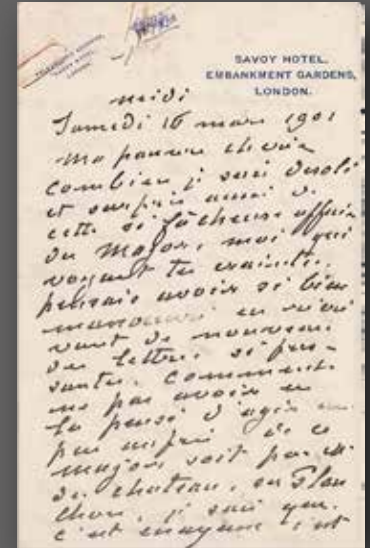 SAVOY HOTEL,
EMBANKMENT GARDENS,
LONDON.
midi
Samedi 16 mars 1901
Ma pauvre chérie
combien je suis désolé
et surpris aussi de
cette si fâcheuse affaire
du Major, moi qui
voyant tes craintes
pensais avoir si bien
manœuvré en écri
vant de nouveau
des lettres si pres-
santes. Comment
ne pas avoir eu
la pensé d'agir
par de ce
major soit par M
du chateau, ou Plan
chon, je sais que
c'est c'est